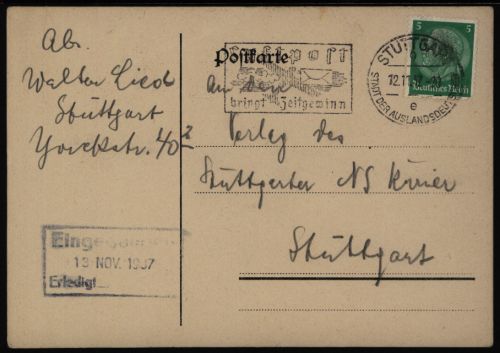 Abs.
Walter Lieb
Stuttgart
Yorckstr. 40
Postkarte
Luftpost
bringt Zeitgewinn
An den
Verlag des
Stuttgarter NS Kurier
Stuttgart
STUTTGART
12.11.37
e
STADT DER AUSLANDSDEUTSCHEN
5 5
Deutsches Reich
Eingegangen
13 NOV. 1937
Erledigt